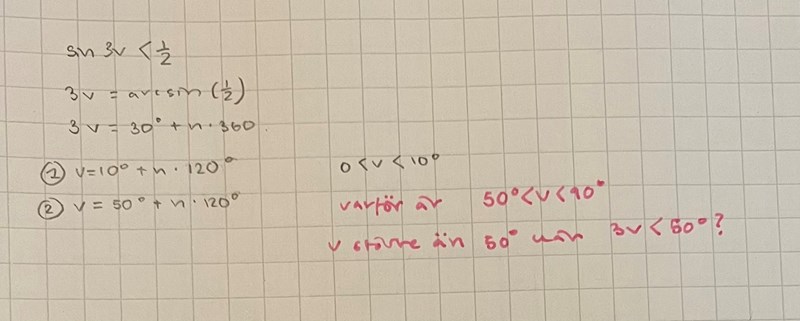 sin 3v < 1/2
3v = arcsin (1/2)
3v = 30° + n · 360
① v = 10° + n · 120°
0 < v < 10°
② v = 50° + n · 120°
varför är 50° < v < 90°
v större än 50° när 3v < 50°?